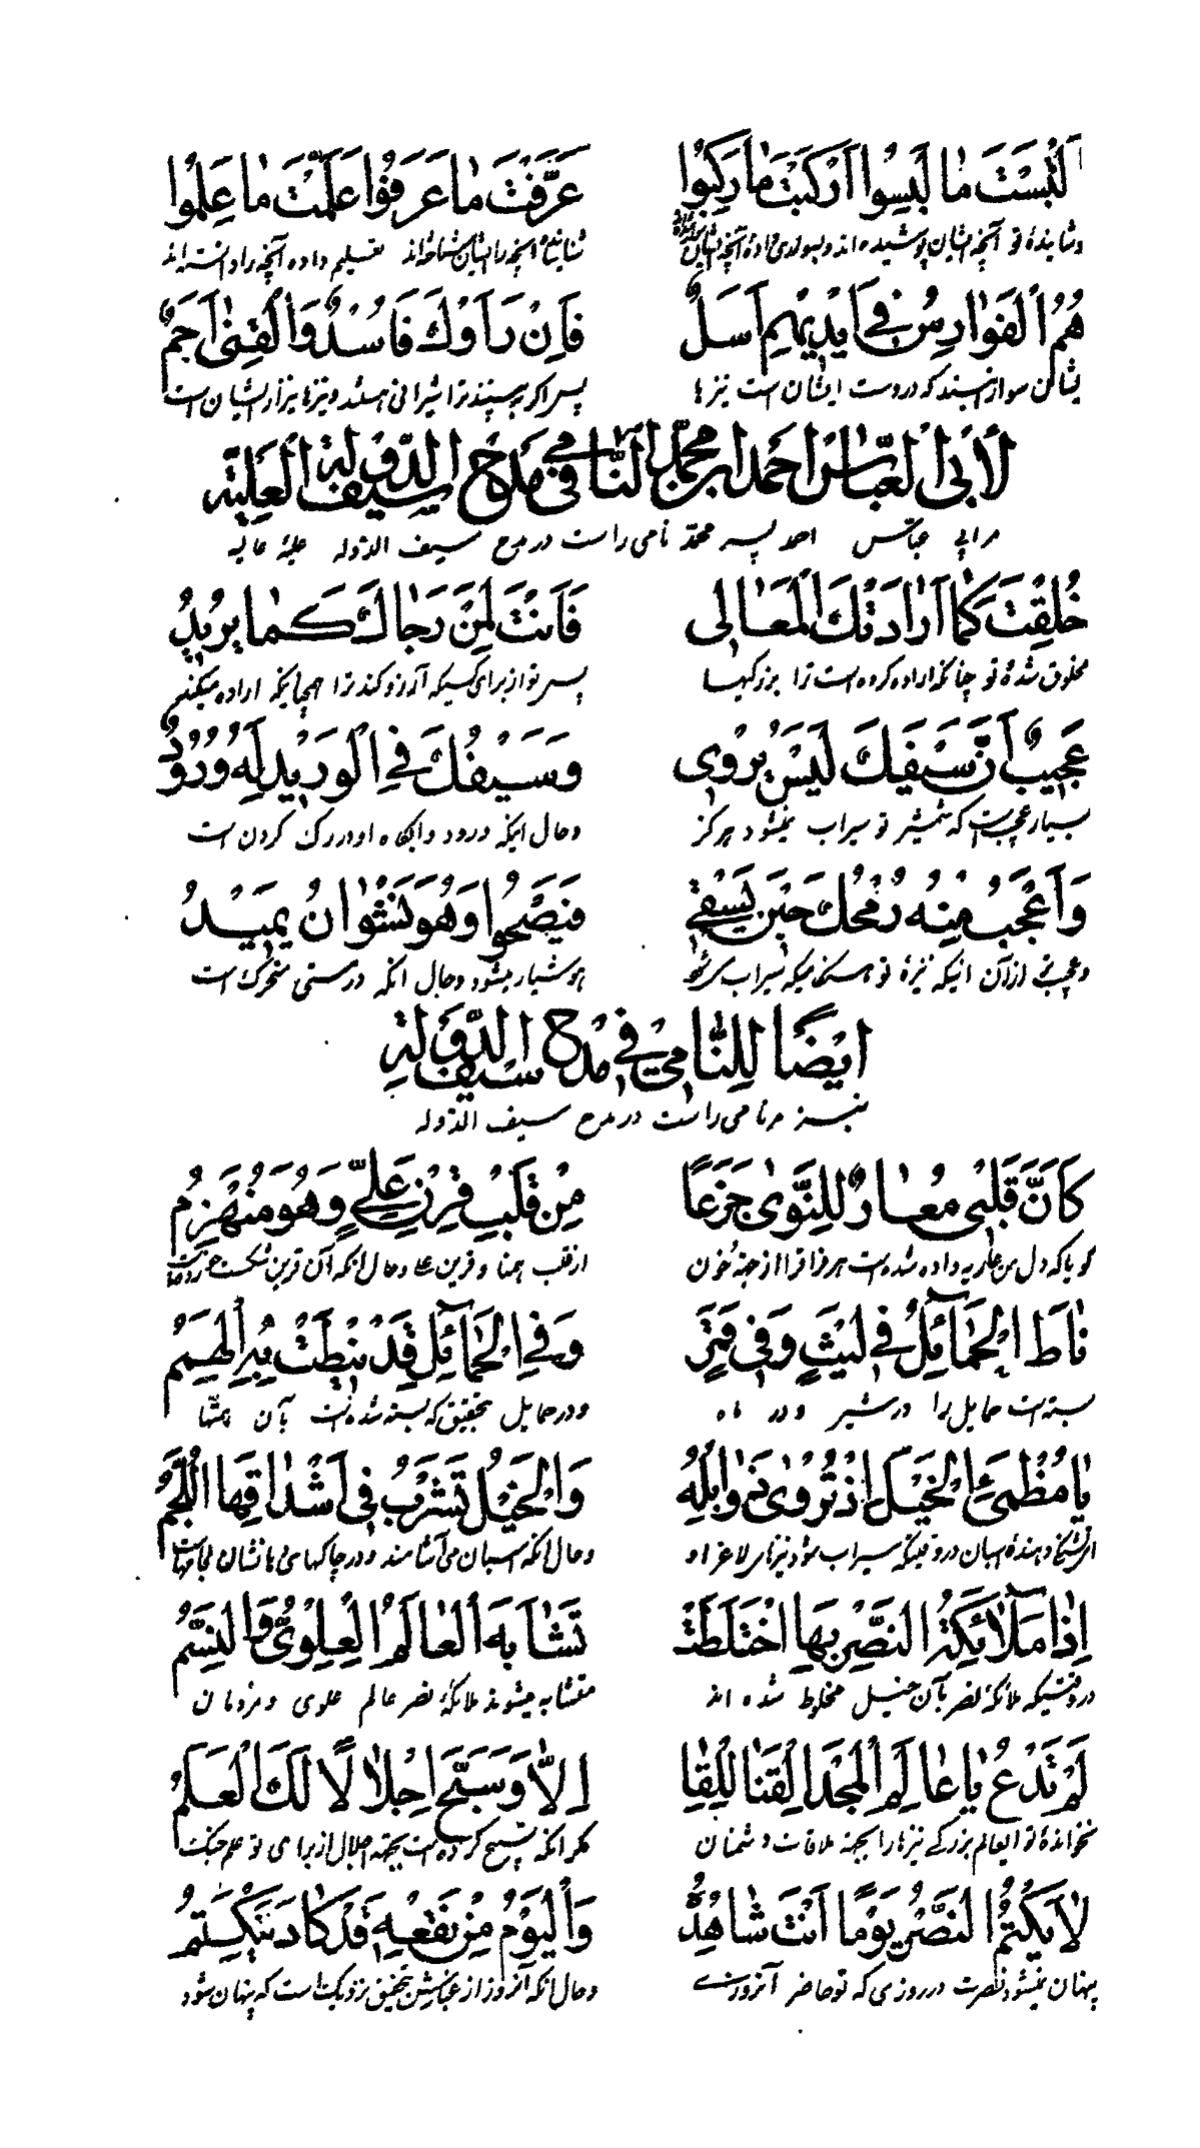 اَلْبَسْتَ مَا لَبِسُوا اَرْكَبْتَ مَا رَكِبُوا عَرَّفْتَ مَا عَرَفُوا عَلَّمْتَ مَا عَلِمُوا
آنچه ایشان پوشیده اند تعلیم داده آنچه را دانسته اند
هُمُ الْفَوَارِسُ فِي اَيْدِيهِمِ اَسَلٌ فَاِنْ رَأَوْكَ فَاُسْدٌ وَالْقَنٰى اَجَمٌ
ایشان سوارانند که در دست ایشان است نیزها پس اگر به بینند ترا شیرانی هستند و نیزها نیزار ایشان است
لِأَبِي الْعَبَّاسِ اَحْمَدَ ابْنِ مُحَمَّدٍ النَّامِي فِي مَدْحِ سَيْفِ الدَّوْلَةِ الْعَلِيَّةِ
مر ابی عباس احمد پسر محمد نامی راست در مدح سیف الدوله علیه عالیه
خُلِقْتَ كَمَا اَرَادَتْكَ الْمَعَالِي فَاَنْتَ لِمَنْ رَجَاكَ كَمَا يُرِيدُ
مخلوق شده تو چنانکه اراده کرده است ترا بزرگیها پس تو از برای کسیکه آرزو کند ترا همچنانکه اراده میکند
عَجِيبٌ اَنَّ سَيْفَكَ لَيْسَ يُرْوٰى وَسَيْفُكَ فِي الْوَرِيدِ لَهُ وُرُودٌ
بسیار عجیب است که شمشیر تو سیراب نمیشود هرگز و حال اینکه ورود و آبگاه او در رگ گردن است
وَاَعْجَبُ مِنْهُ رُمْحُكَ حِينَ يُسْقٰى فَيَصْحُوا وَهُوَ نَشْوَانُ يَمِيدُ
و عجیب تر از آن اینکه نیزهٔ تو هنگامیکه سیراب هوشیار میشود و حال آنکه در مستی متحرک است
اَيْضًا لِلنَّامِي فِي مَدْحِ سَيْفِ الدَّوْلَةِ
نیز مر نامی راست در مدح سیف الدوله
كَاَنَّ قَلْبِي مُعَارٌ لِلنَّوٰى جَزَعًا مِنْ قَلْبِ قِرْنِ عَلِيٍّ وَهُوَ مُنْهَزِمٌ
گویا که دل من عاریه داده شده است از قلب و حال آنکه آن قرین شکست
نَاطَ الْحَمَائِلَ فِي لَيْثٍ وَفِي قَمَرٍ وَفِي الْحَمَائِلِ قَدْ نِيطَتْ بِهِ الْهِمَمُ
بسته است حمایل را در شیر و در ماه و در حمایل بتحقیق که بسته شده است بآن همتها
يَا مُظْمِئَ الْخَيْلِ اِذْ تُرْوٰى ذَوَابِلُهُ وَالْخَيْلُ تَشْرَبُ فِي اَشْدَاقِهَا اللُّجُمُ
ای تشنگی دهندهٔ اسبان در وقتیکه سیراب شود نیزهای لاغر او و حال آنکه اسبان می آشامند و در
اِذَا مَلَائِكَةُ النَّصْرِ بِهَا اخْتَلَطَتْ تَشَابَهَ الْعَالَمُ الْعِلْوِيُّ وَالنَّسَمُ
در وقتیکه ملائکهٔ نصر بآن خیل مخلوط شده اند متشابه میشوند ملائکهٔ نصر عالم علوی و مردمان
لَمْ تَدْعُ يَا عَالِمَ الْمَجْدِ الْقَنَا لِلِقَا اِلَّا وَسَبَّحَ اِجْلَالًا لَكَ الْعَلَمُ
نخواندهٔ تو ای عالم بزرگی نیزها را بجهة ملاقات دشمنان مگر آنکه تسبیح کرده است بجهة اجلال از برای تو علم جنگ
لَا يُكْتَمُ النَّصْرُ يَوْمًا اَنْتَ شَاهِدُهُ وَالْيَوْمُ مِنْ نَقْعِهِ قَدْ كَادَ يَنْكَتِمُ
پنهان نمیشود نصرت در روزی که تو حاضر آنروزی و حال آنکه آنروز از غبارش بتحقیق نزدیک است که پنهان شود